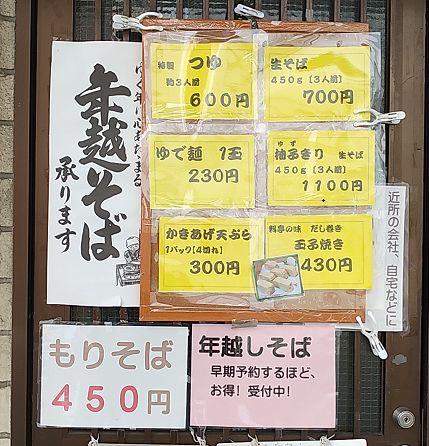 ゆく年に心あたたまる
年越そば
承ります
特製 つゆ
約3人前
600円
生そば
450g[3人前]
700円
ゆで麺 1玉
230円
ゆず
柚子きり 生そば
450g[3人前]
1100円
かきあげ天ぷら
1パック[4切れ]
300円
料亭の味 だし巻き
玉子焼き
430円
近所の会社、自宅などに
もりそば
450円
年越しそば
早期予約するほど、
お得! 受付中!